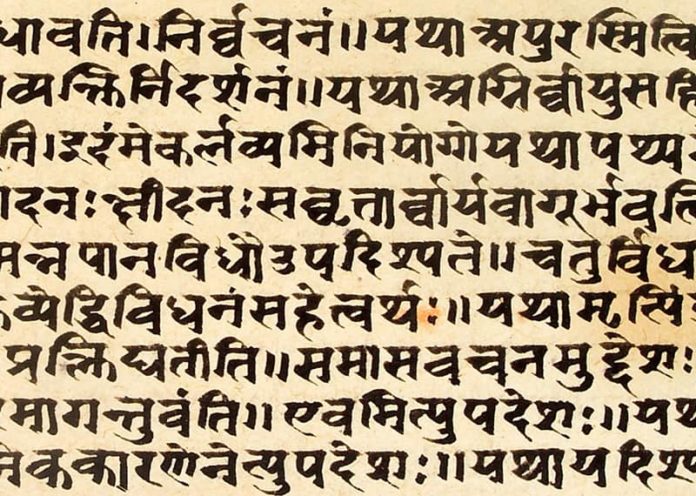 धावति।निर्व्वचनं॥यथाअपुरस्मि
व्यक्तिर्निदर्शनं॥यथाअग्निर्व्वायुसहि
ति।इदंमेकर्त्तव्यमितिनियोगोयथापथ्य
दनःक्षीदनःसघृतार्व्वायवागूर्भवति
मन्नपानविधौउपदिश्यते॥चतुर्विध
विविधनंसहेत्वर्थः॥यथामृत्पिं
प्रक्लिद्यतीति॥समासवचनमुद्देशः
मागन्तुवंति॥एवमित्युपदेशः॥यथ
ककारणेनेत्युपदेशः॥यथायदिश्य